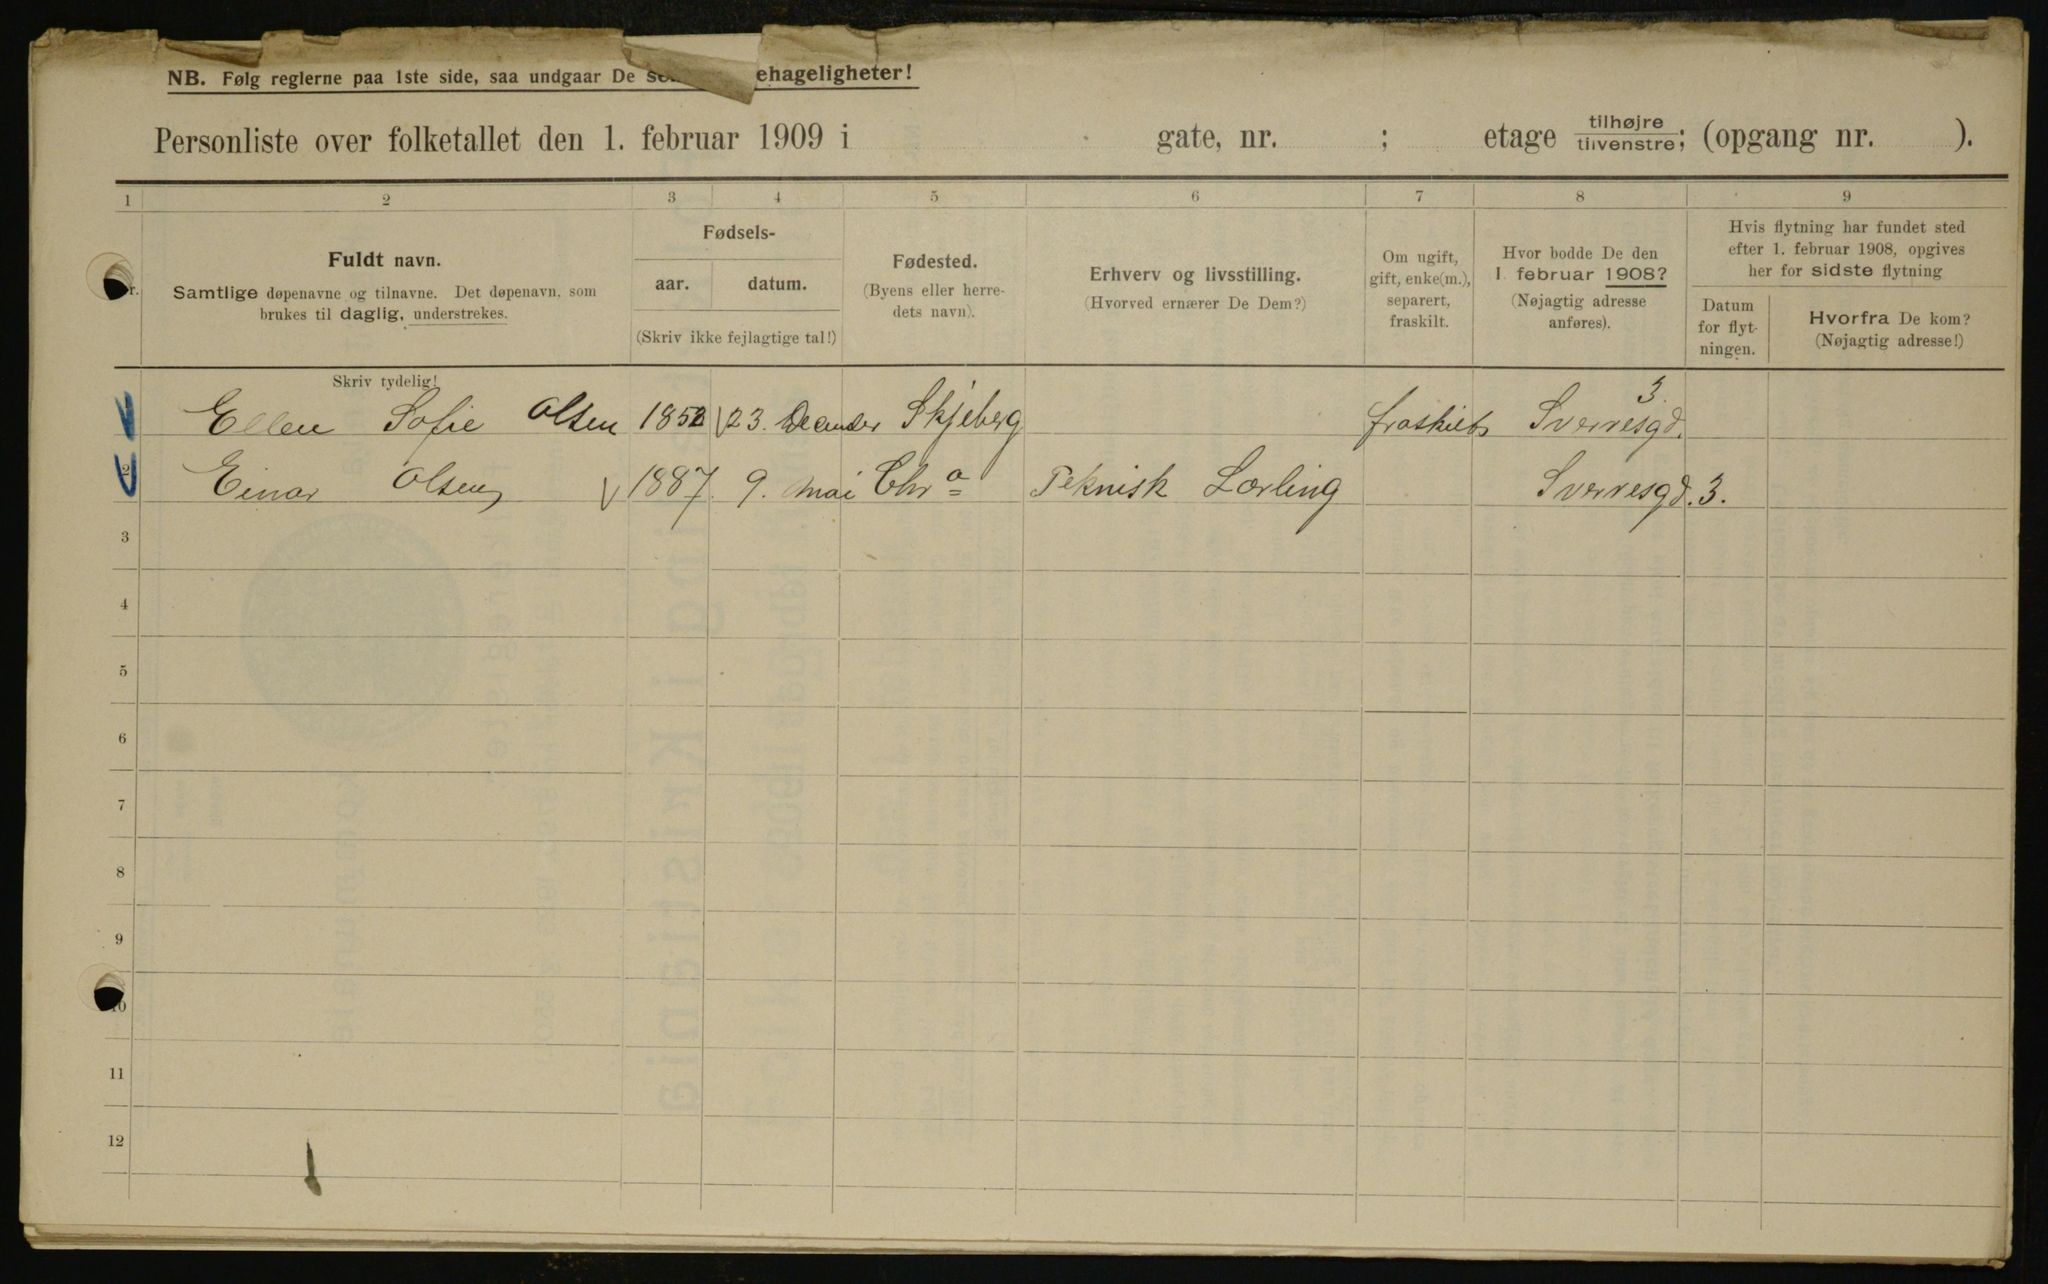 NB. Følg reglerne paa 1ste side, saa undgaar De ehageligheter!
Personliste over folketallet den 1. februar 1909 i gate, nr. ; etage tilhøjre/tilvenstre; (opgang nr. ).
1 2 3 4 5 6 7 8 9
Fuldt navn.
Samtlige døpenavne og tilnavne. Det døpenavn, som
brukes til daglig, understrekes.
Skriv tydelig!
Fødsels-
aar. datum.
(Skriv ikke fejlagtige tal!)
Fødested.
(Byens eller herre-
dets navn).
Erhverv og livsstilling.
(Hvorved ernærer De Dem?)
Om ugift,
gift, enke(m.),
separert,
fraskilt.
Hvor bodde De den
1. februar 1908?
(Nøjagtig adresse
anføres).
Hvis flytning har fundet sted
efter 1. februar 1908, opgives
her for sidste flytning
Datum
for flyt-
ningen.
Hvorfra De kom?
(Nøjagtig adresse!)
Ellen Sofie Olsen 1852 23. December Skjeberg fraskilt Sverresgd. 3.
2 Einar Olsen 1887. 9. mai Chra Teknisk Lærling Sverresgd. 3.
3
4
5
6
7
8
9
10
11
12